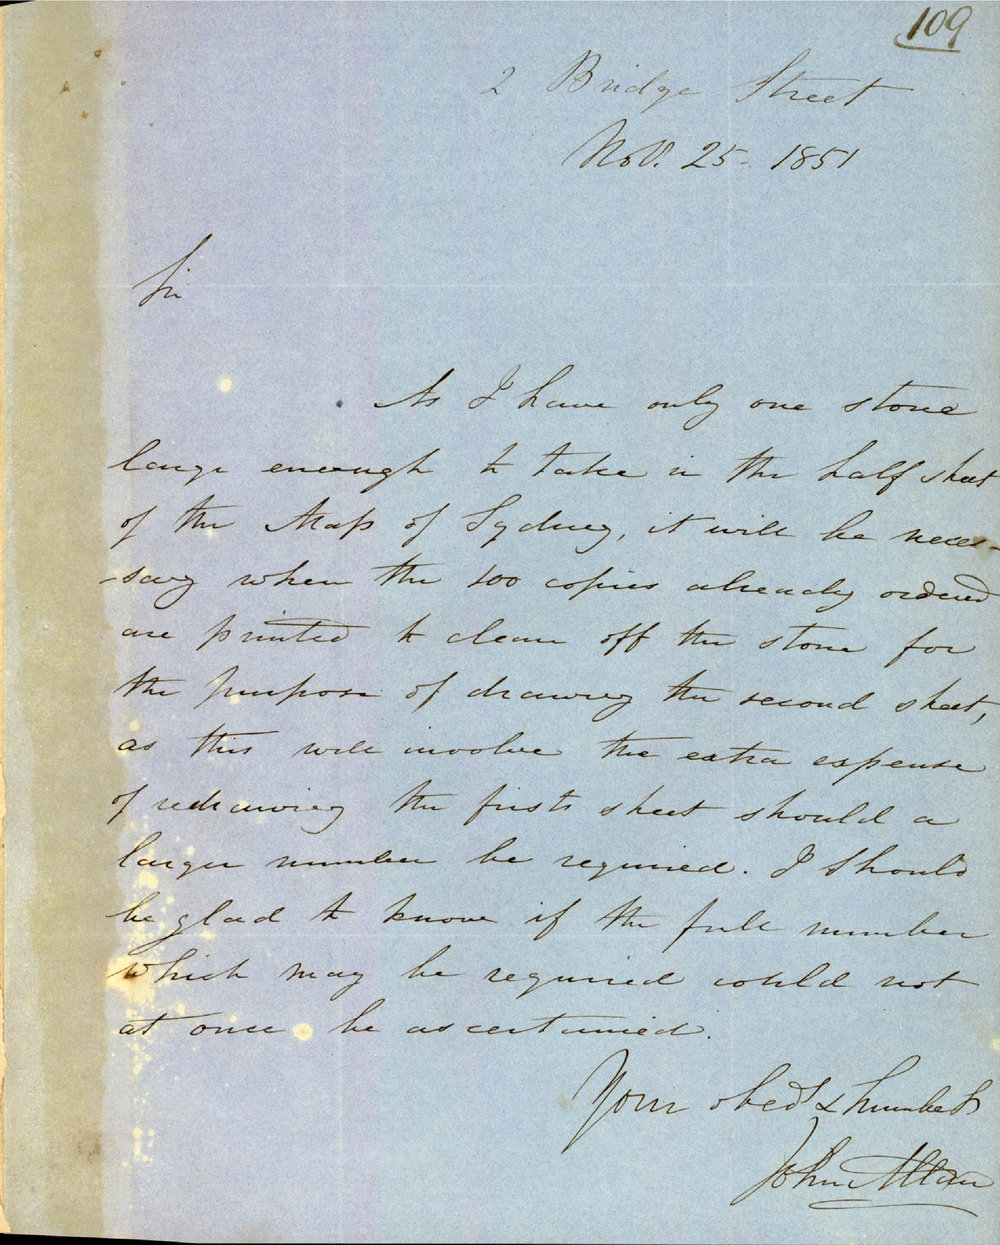 109
2 Bridge Street
Nov. 25. 1851
Sir
As I have only one stone
large enough to take in the half sheet
of the Map of Sydney, it will be neces-
-sary when the 100 copies already ordered
are printed to clean off the stone for
the purpose of drawing the second sheet,
as this will involve the extra expense
of redrawing the first sheet should a
larger number be required. I should
be glad to know if the full number
which may be required could not
at once be ascertained.
Your obedt & humble St
John Allan